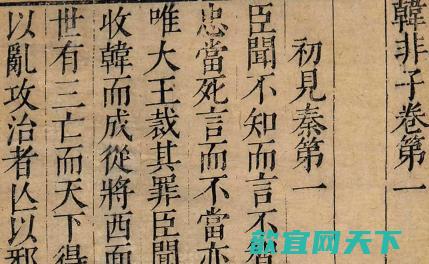 韓非子卷第一
初見秦第一
臣聞不知而言不智
忠當死言而不當亦
唯大王裁其罪臣聞
收韓而成從將西面
世有三亡而天下得
以亂攻治者亾以邪
宜网天下